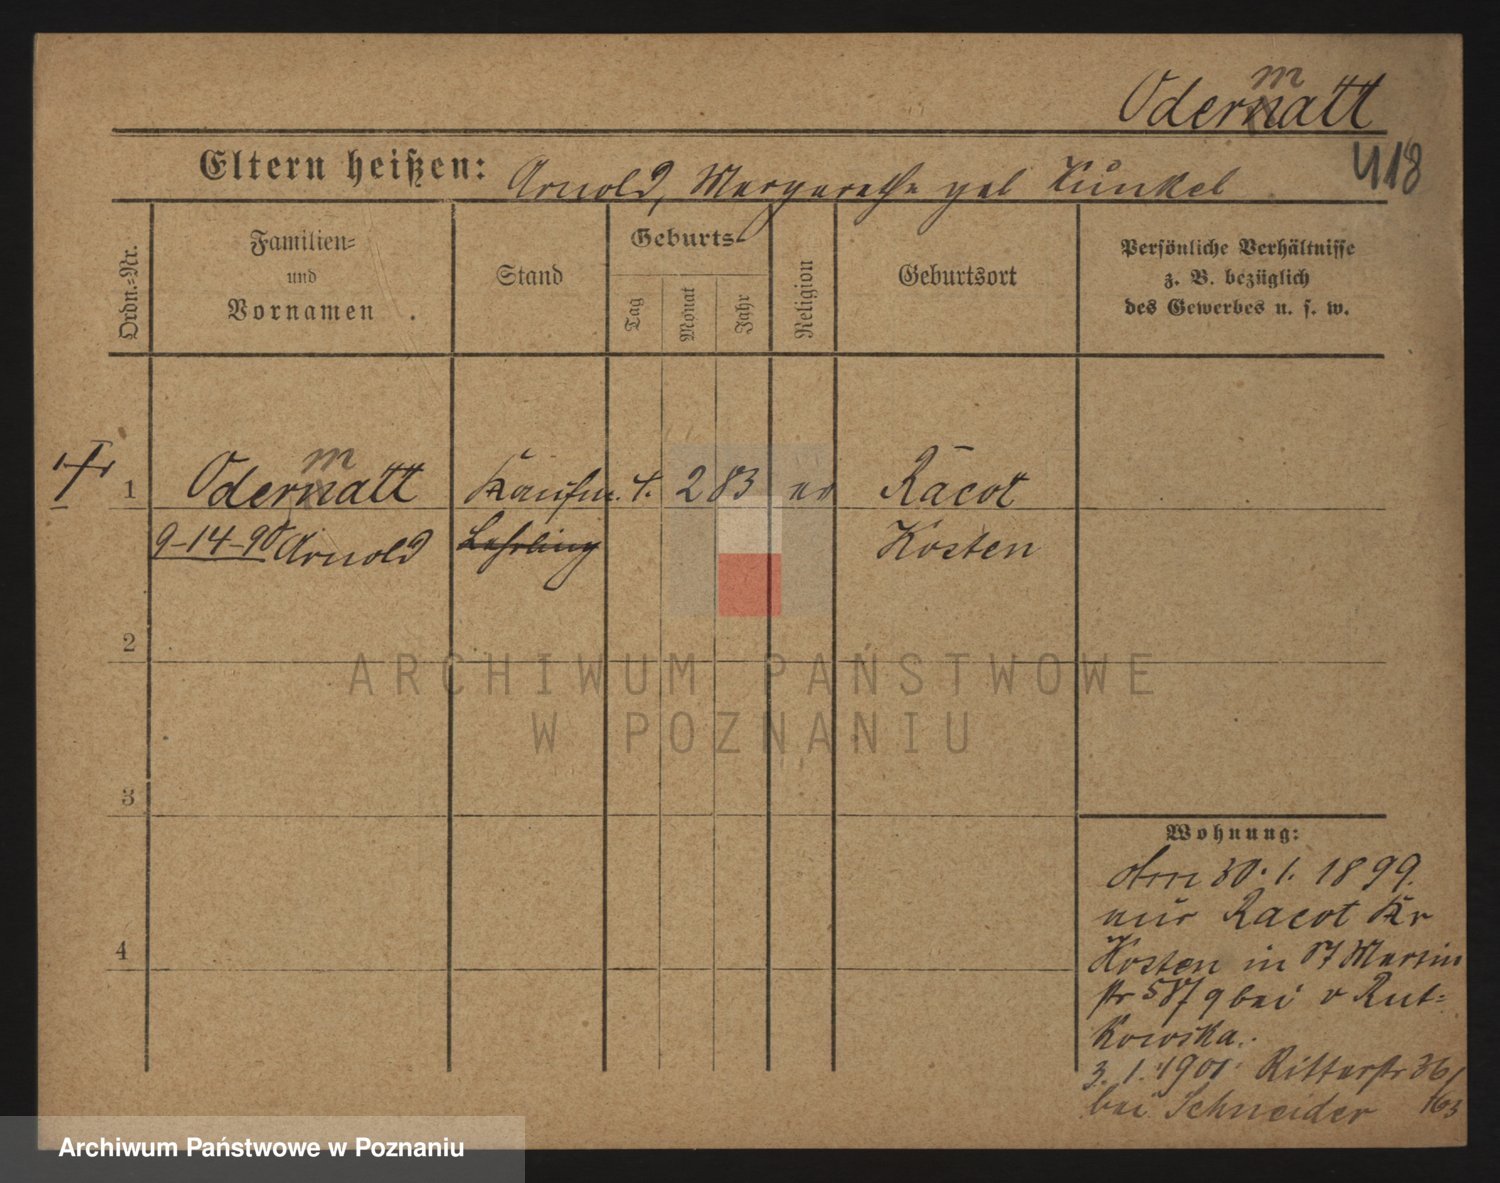 Odermatt
418
Eltern heißen: Arnold, Margarethe geb Kunkel
Ordn.-Nr.
Familien-
und
Vornamen
Stand
Geburts-
Tag
Monat
Jahr
Religion
Geburtsort
Persönliche Verhältnisse
z. B. bezüglich
des Gewerbes u. s. w.
1 Odermatt Kaufm. 4. 2 83 ev Racot
9-14-90 Arnold Lehrling Kosten
2
3
4
Wohnung:
30. 1. 1899.
aus Racot Kr
Kosten in St Martin
str bei v Rut-
kowska.
3. 1. 1901. Ritterstr 36
bei Schneider
ARCHIWUM PAŃSTWOWE
W POZNANIU
Archiwum Państwowe w Poznaniu